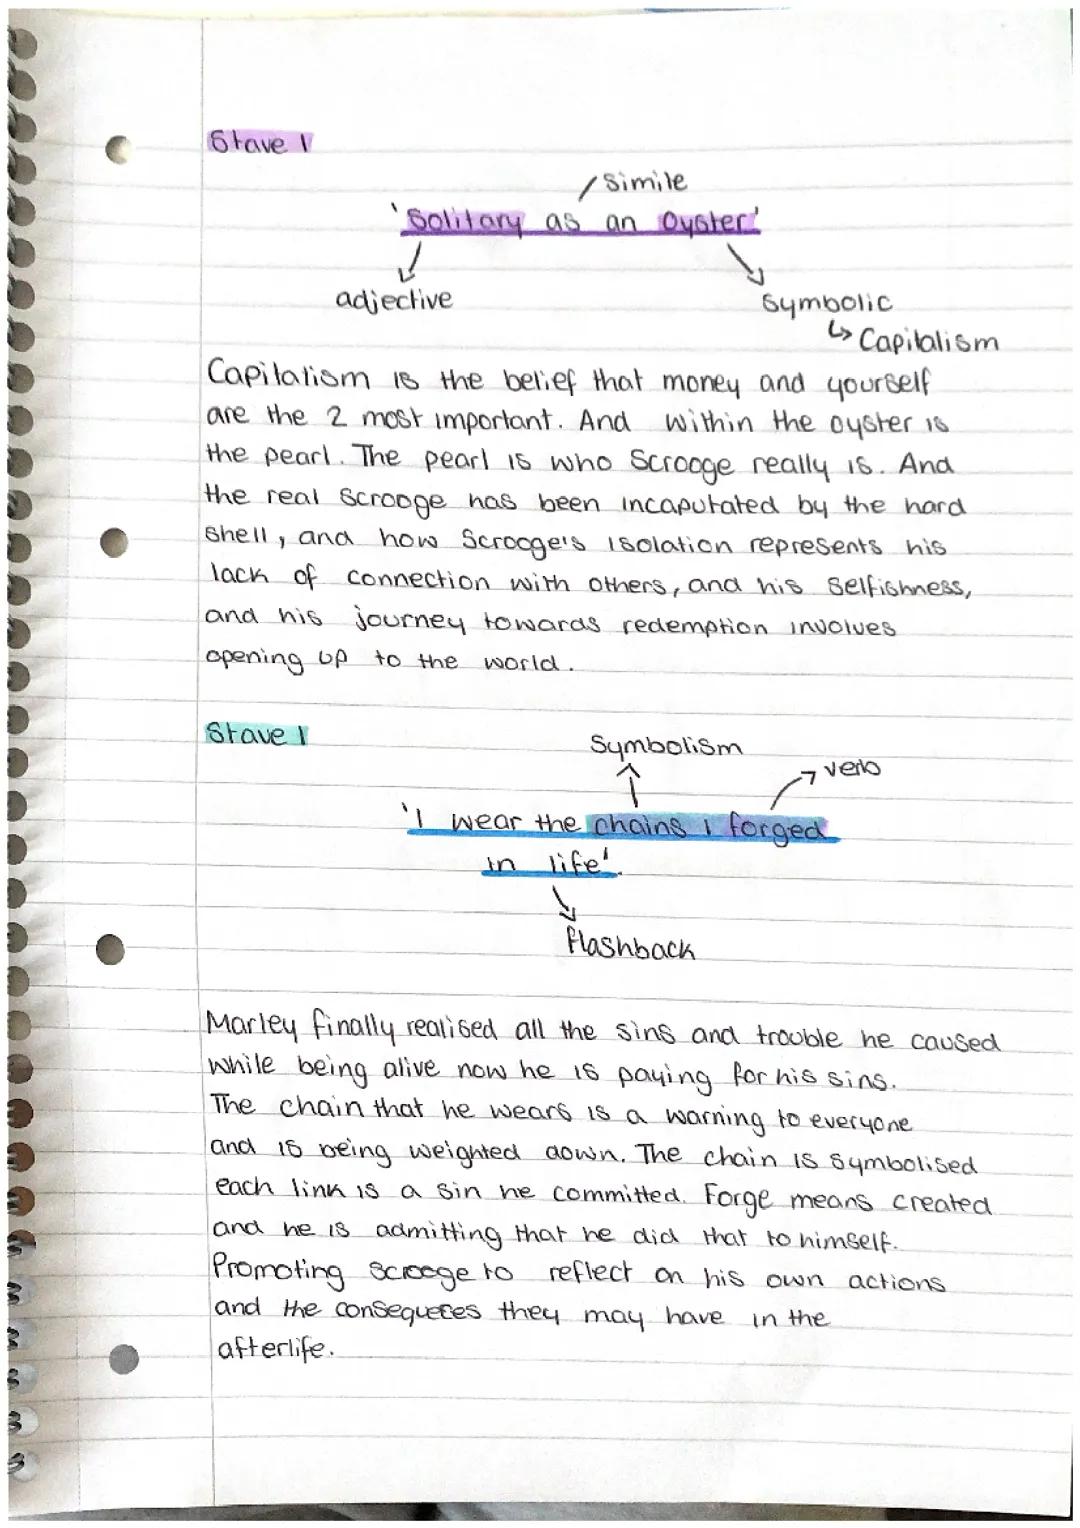 Stave 1
Simile
'Solitary as an Oyster'
adjective
Symbolic
↳ Capitalism
Capitalism is the belief that money and yourself
are the 2 most important. And within the oyster is
the pearl. The pearl is who Scrooge really is. And
the real Scrooge has been incaputated by the hard
shell, and how Scrooge's isolation represents his
lack of connection with others, and his selfishness,
and his journey towards redemption involves
opening up to the world.
Stave 1
Symbolism
verb
'I wear the chains I forged
in life'.
flashback
Marley finally realised all the sins and trouble he caused
while being alive now he is paying for his sins.
The chain that he wears is a warning to everyone
and is being weighted down. The chain is symbolised
each link is a sin he committed. Forge means created
and he is admitting that he did that to himself.
Promoting Scrooge to reflect on his own actions
and the conseqeces they may have in the
afterlife.